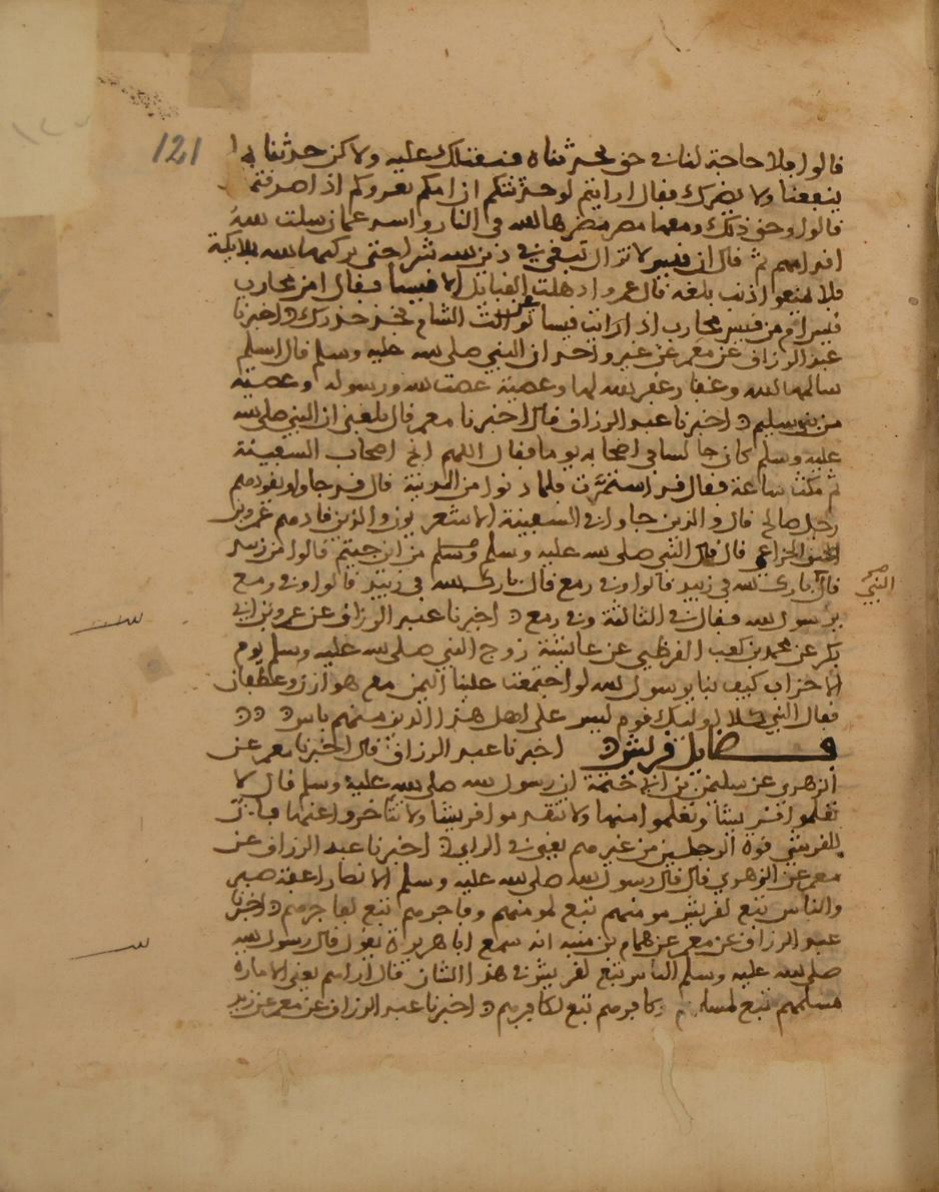 121
قالوا فلا حاجة لنا في حق تحدثناه فنقتلك عليه ولاكن حدثنا بما
ينفعنا ولا يضرك فقال ارايتم لو حدثتكم ان امكم تغزوكم اذا صدقتم
قالوا وحق ذلك ومعها مضر مضرها الله في النار واسد عمان سلت الله
اقدامهم ثم قال ان قيس لا تزال تبغي في دين الله شرا حتى يركبها الله بملايكة
فلا يمنعوا ذنب تلعة قال عمرو اذهلت القبايل الا قيسا فقال امن محارب
قيس ام من قيس محارب اذا رايت قيسا توالت الشام فخذ حذرك اخبرنا
عبد الرزاق عن معمر عن غير واحد ان النبي صلى الله عليه وسلم قال اسلم
سالمها الله وغفار غفر الله لها وعصية عصت الله ورسوله وعصية
من بني سليم اخبرنا عبد الرزاق قال اخبرنا معمر قال بلغني ان النبي صلى الله
عليه وسلم كان جالسا في اصحابه يوما فقال اللهم انج اصحاب السفينة
ثم مكث ساعة فقال قد استمرت فلما دنوا من المدينة قال قد جاوا يقودهم
رجل صالح قال والذين جاوا في السفينة الاشعريون والذي قادهم عمرو بن
الحمق الخزاعي قال قال النبي صلى الله عليه وسلم من اين جيتم قالوا من زبيد
قال النبي بارك الله في زبيد قالوا وفي رمع قال بارك الله في زبيد قالوا وفي رمع
يرسول الله فقال في الثالثة وفي رمع اخبرنا عبد الرزاق عن عمرو بن ابي
بكر عن محمد بن كعب القرظي عن عايشة زوج النبي صلى الله عليه وسلم يوم
الاحزاب كيف بنا يرسول الله لو اجتمعت علينا اليمن مع هوازن وغطفان
فقال النبي كلا اوليك قوم ليس على اهل هذا الدين منهم باس
فضايل قريش اخبرنا عبد الرزاق قال اخبرنا معمر عن
الزهري عن سليمن بن ابي حثمة ان رسول الله صلى الله عليه وسلم قال لا
تعلموا قريشا وتعلموا منها ولا تتقدموا قريشا ولا تتاخروا عنها فان
للقرشي قوة الرجلين من غيرهم يعني في الراي اخبرنا عبد الرزاق عن
معمر عن الزهري قال قال رسول الله صلى الله عليه وسلم الانصار اعفة صبر
والناس تبع لقريش مومنهم تبع لمومنهم وفاجرهم تبع لفاجرهم اخبرنا
عبد الرزاق عن معمر عن همام بن منبه انه سمع ابا هريرة يقول قال رسول الله
صلى الله عليه وسلم الناس تبع لقريش في هذا الشان قال اراهم يعني الامارة
مسلمهم تبع لمسلمهم وكافرهم تبع لكافرهم اخبرنا عبد الرزاق عن معمر عن زيد